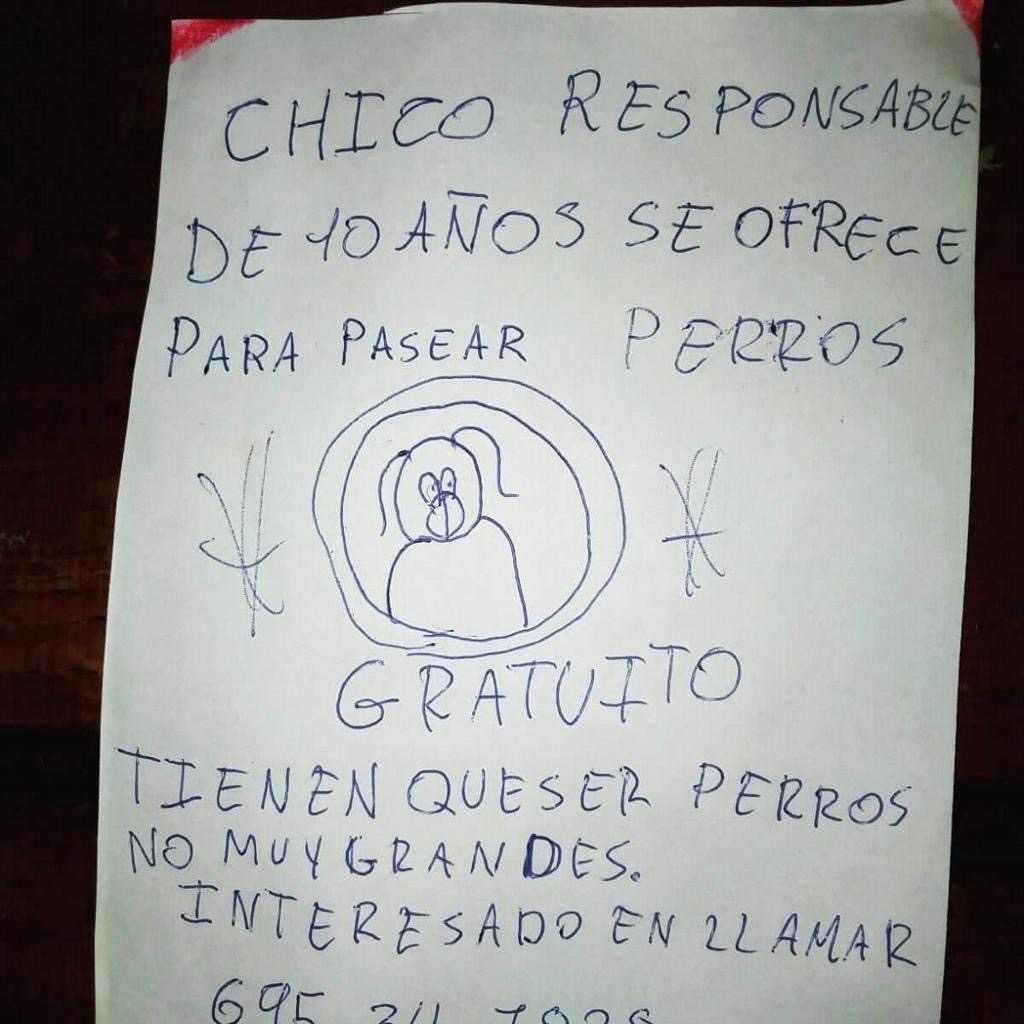 CHICO RESPONSABLE
DE 10 AÑOS SE OFRECE
PARA PASEAR PERROS
GRATUITO
TIENEN QUE SER PERROS
NO MUY GRANDES.
INTERESADO EN LLAMAR
695